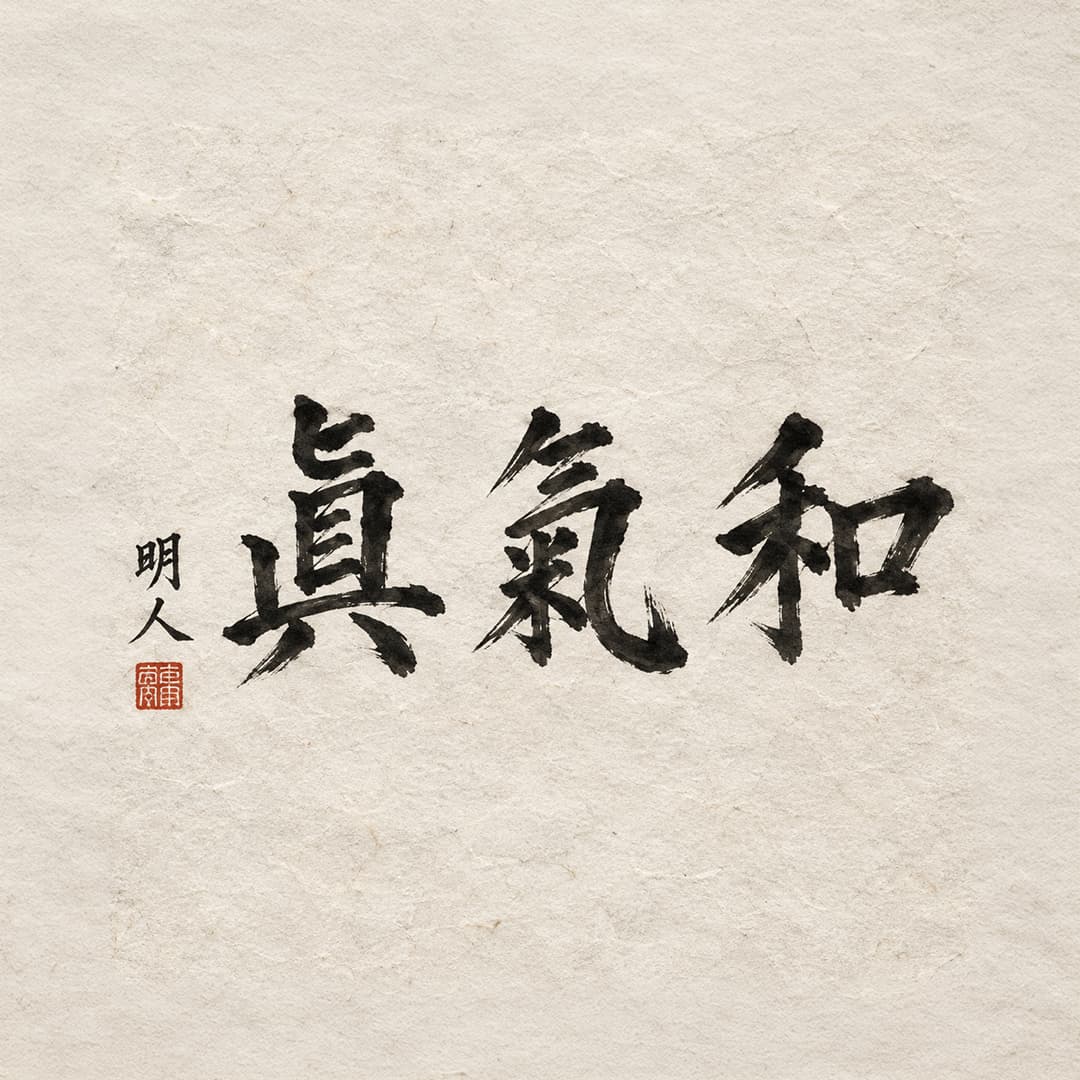 和氣眞
明人